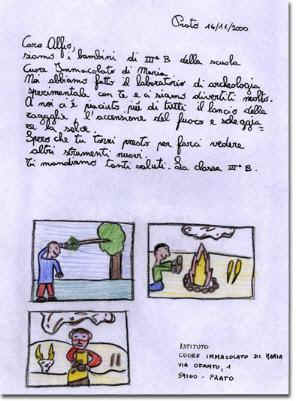 Prato 14/11/2000
Caro Alfio,
siamo i bambini di III° B della scuola
Cuore Immacolato di Maria.
Noi abbiamo fatto il laboratorio di archeologia
sperimentale con te e ci siamo divertiti molto.
A noi ci è piaciuto più di tutti il lancio della
zagaglia, l'accensione del fuoco e scheggia-
re la selce.
Spero che tu torni presto per farci vedere
altri strumenti nuovi
ti mandiamo tanti saluti. La classe III° B.
ISTITUTO
CUORE IMMACOLATO DI MARIA
VIA 1
59100 - PRATO